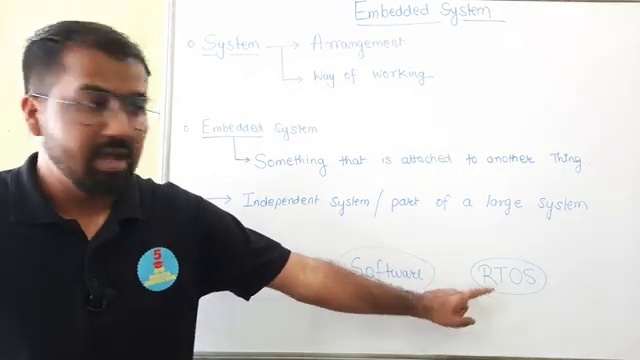 Embedded System
System → Arrangement
Way of working
Embedded System
Something that is attached to another Thing.
Independent system / part of a large system
Software RTOS
5